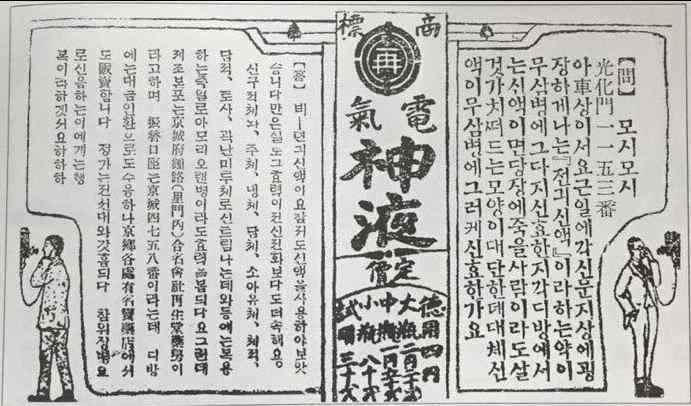 【問】 모시모시
光化門一一五三番
아車상이서요근일에각신문지상에굉
장하게나는『전긔신액』이라하는약이
무삼병에그다지신효한지각디방에서
는신액이면당장에죽을사람이라도살
것가치떠드는모양이대단한데대체신
액이무삼병에그러케신효한가요
商標
再
電氣
神液
定價
德用四円
大瓶
中瓶
小瓶八十
試用三十
【答】 비ー뎐긔신액이요참 신액을사용하야보앗
슴니다만은실노그효력이뎐신뎐화보다도더속해요。
주체、냉체、담체、소아유체、체적、
담적、토사、곽난미루체로신트림나는데와등에는복용
하는즉 로아모리오랜병이라도효력을봄듸다요그런데
제조본포는京城府鍾路 合名會社再生堂藥房이
라고하며 振替口座는京城四七五八番이라는데 디방
에는대금인환으로도수응하나京鄕各處有名賣藥店에서
도販賣합니다 정가는 갓흡듸다 참위장병으
로신음하는이에게는행
복이라하겟서요하하하